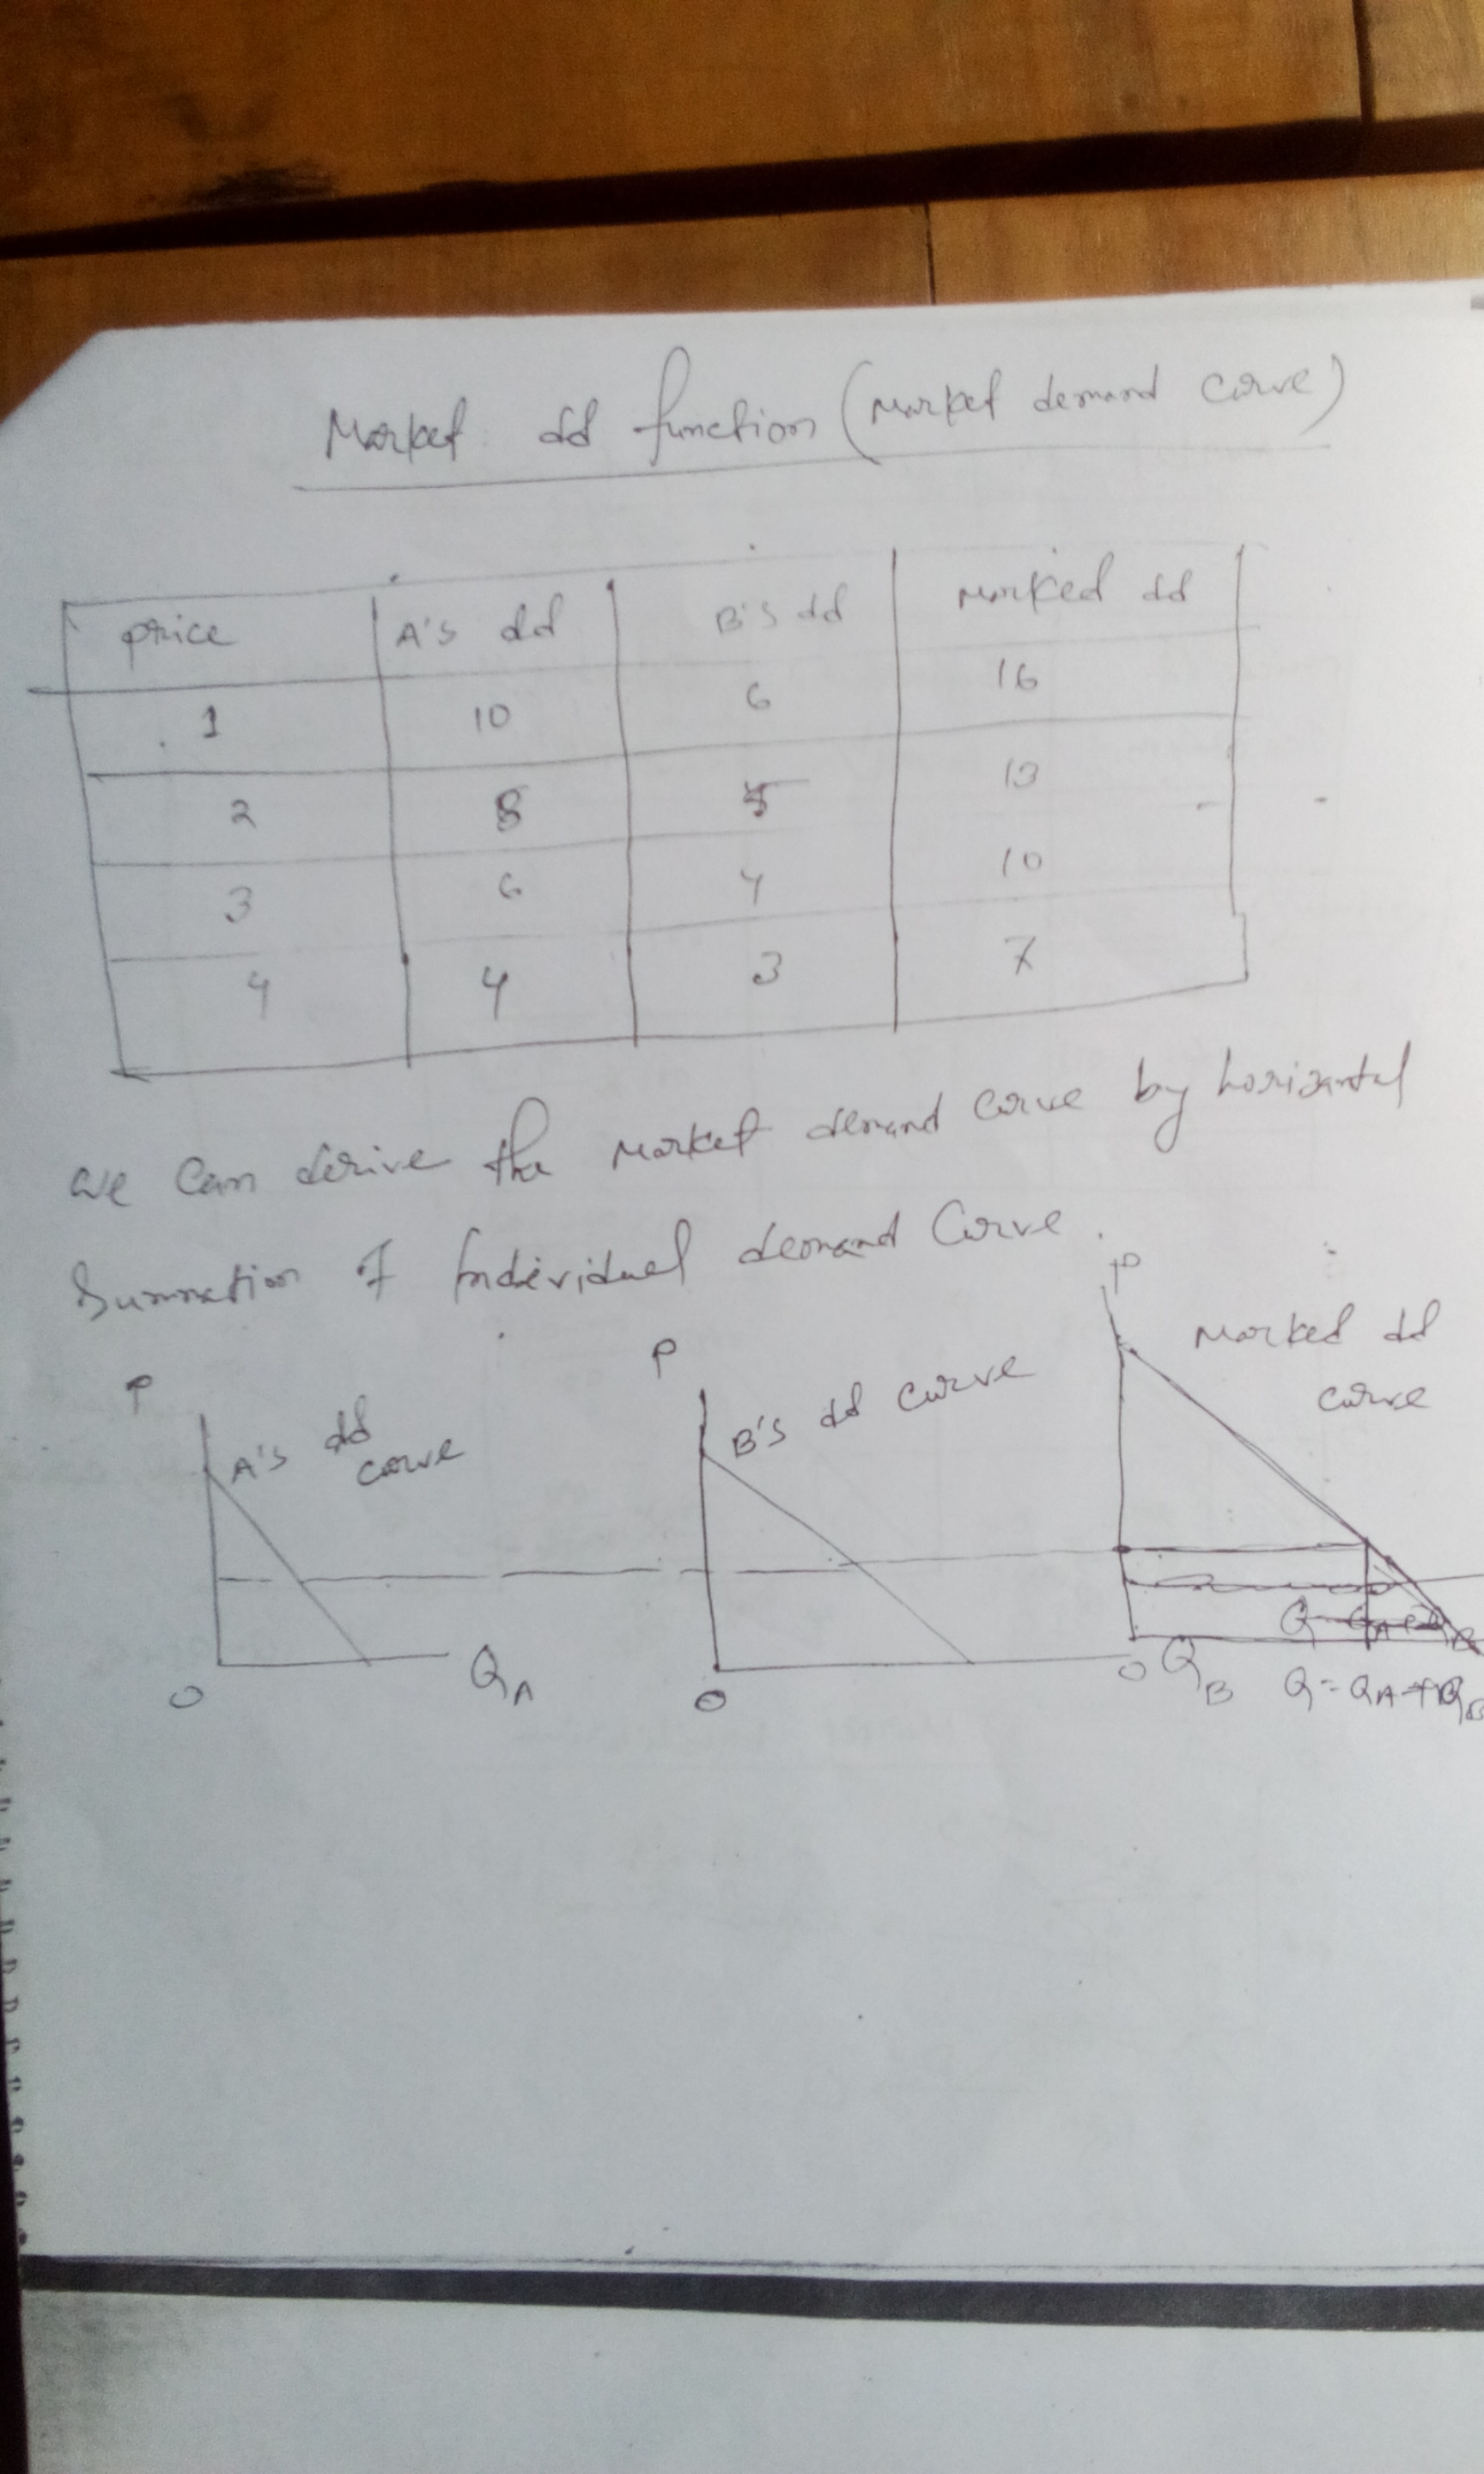 Market dd function (Market demand curve)
price A's dd B's dd Marked dd
1 10 6 16
2 8 5 13
3 6 4 10
4 4 3 7
we can derive the market demand curve by horizantal
Summation of Individual demand Curve.
P
Marked dd
curve
P
B's dd curve
P
A's dd
curve
0 QA
0 QB
0 Q = QA + QB